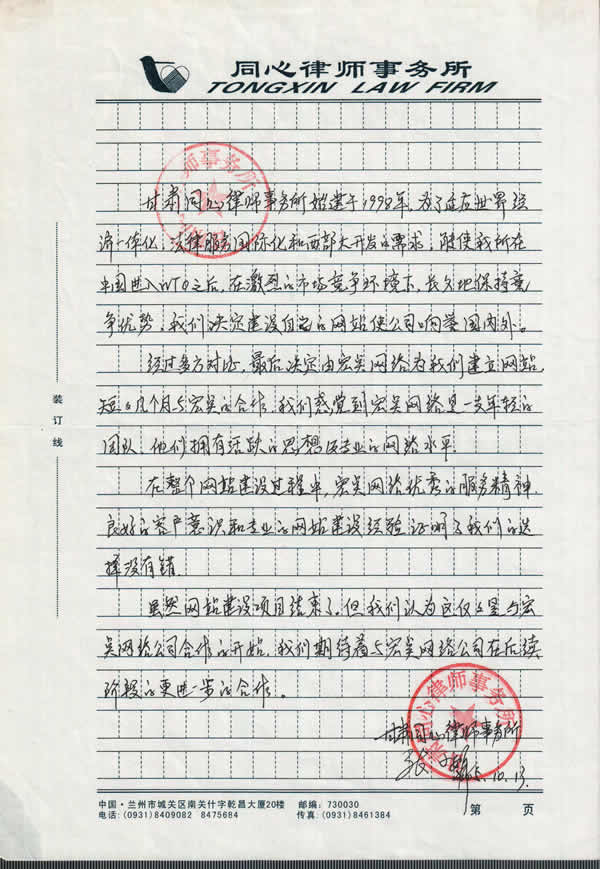 同心律师事务所
TONGXIN LAW FIRM
师事务所
甘肃同心律师事务所始建于1998年,为了适应世界经
济一体化,法律服务国际化和西部大开发的需求,能使我所在
中国进入WTO之后,在激烈的市场竞争环境下,长久地保持竞
争优势,我们决定建设自己的网站使公司响誉国内外。
经过多方对比,最后决定由宏昊网络为我们建立网站,
短短几个月与宏昊的合作,我们感觉到宏昊网络是一支年轻的
团队,他们拥有活跃的思想及专业的网络水平.
在整个网站建设过程中,宏昊网络优秀的服务精神,
良好的客户意识和专业的网站建设经验证明了我们的选
择没有错.
虽然网站建设项目结束了,但我们认为这仅仅是与宏
昊网络公司合作的开始,我们期待着与宏昊网络公司在后续
阶段的更进一步的合作。
心律师事务所
甘肃同心律师事务所
2005.10.13
装订线
中国·兰州市城关区南关什字乾昌大厦20楼 邮编:730030
电话:(0931)8409082 8475684 传真:(0931)8461384
第 页